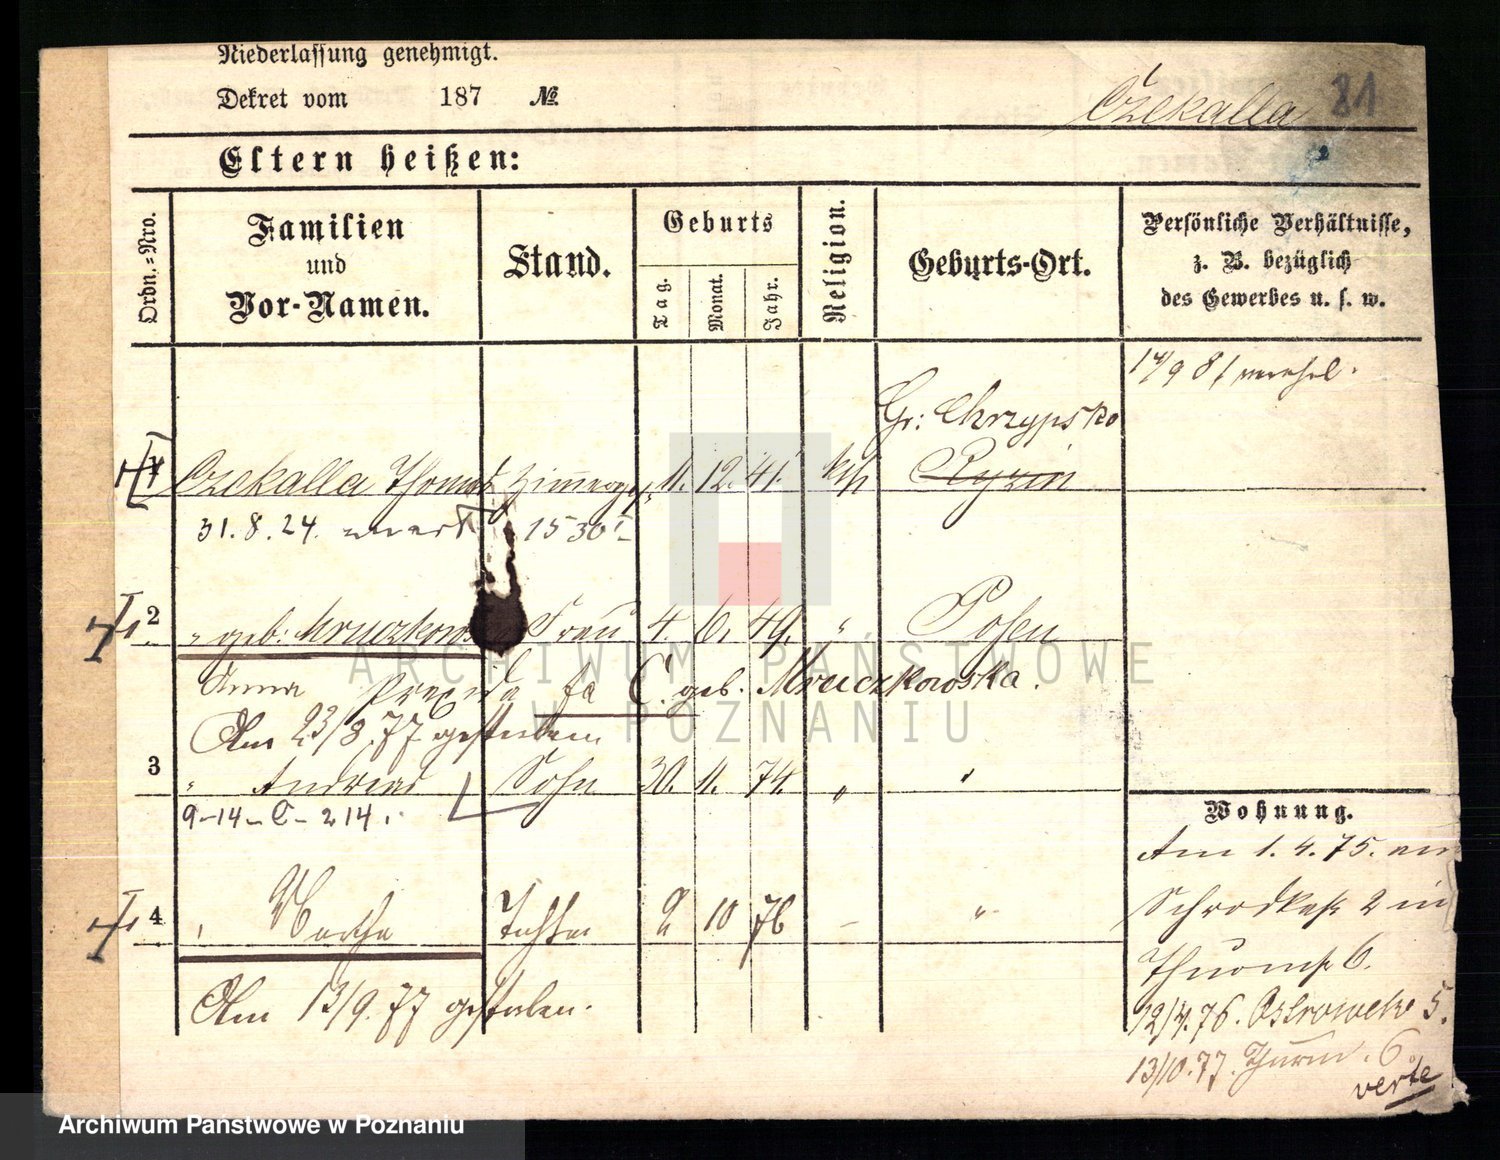 Niederlassung genehmigt.
Dekret vom 187 №
Czekalla 81
Eltern heißen:
Ordn.-Nro.
Familien
und
Vor-Namen.
Stand.
Geburts
Tag.
Monat.
Jahr.
Religion.
Geburts-Ort.
Persönliche Verhältnisse,
z. B. bezüglich
des Gewerbes u. s. w.
Gr: Chrzypsko
1 Czekalla Thomas 11. 12. 41. kth Ryzin
31.8.24. 1530
2 " geb: Mruczkows Frau 4. 6. 49. " Posen
Anna Praxida geb. Mruczkowska.
Am 23/8.77 gestorben
3 " Andreas Sohn 30. 11. 74. " "
9-14-C-214.
4 " Martha Tochter 2 10 76 — "
Am 13/9.77 gestorben.
Wohnung.
Am 1.4.75. am
Schrodkastr 2 in
Thurmstr 6.
12/4.76. Ostrowek 5.
13/10.77. Thurm. 6
verte
ARCHIWUM PAŃSTWOWE
W POZNANIU
Archiwum Państwowe w Poznaniu